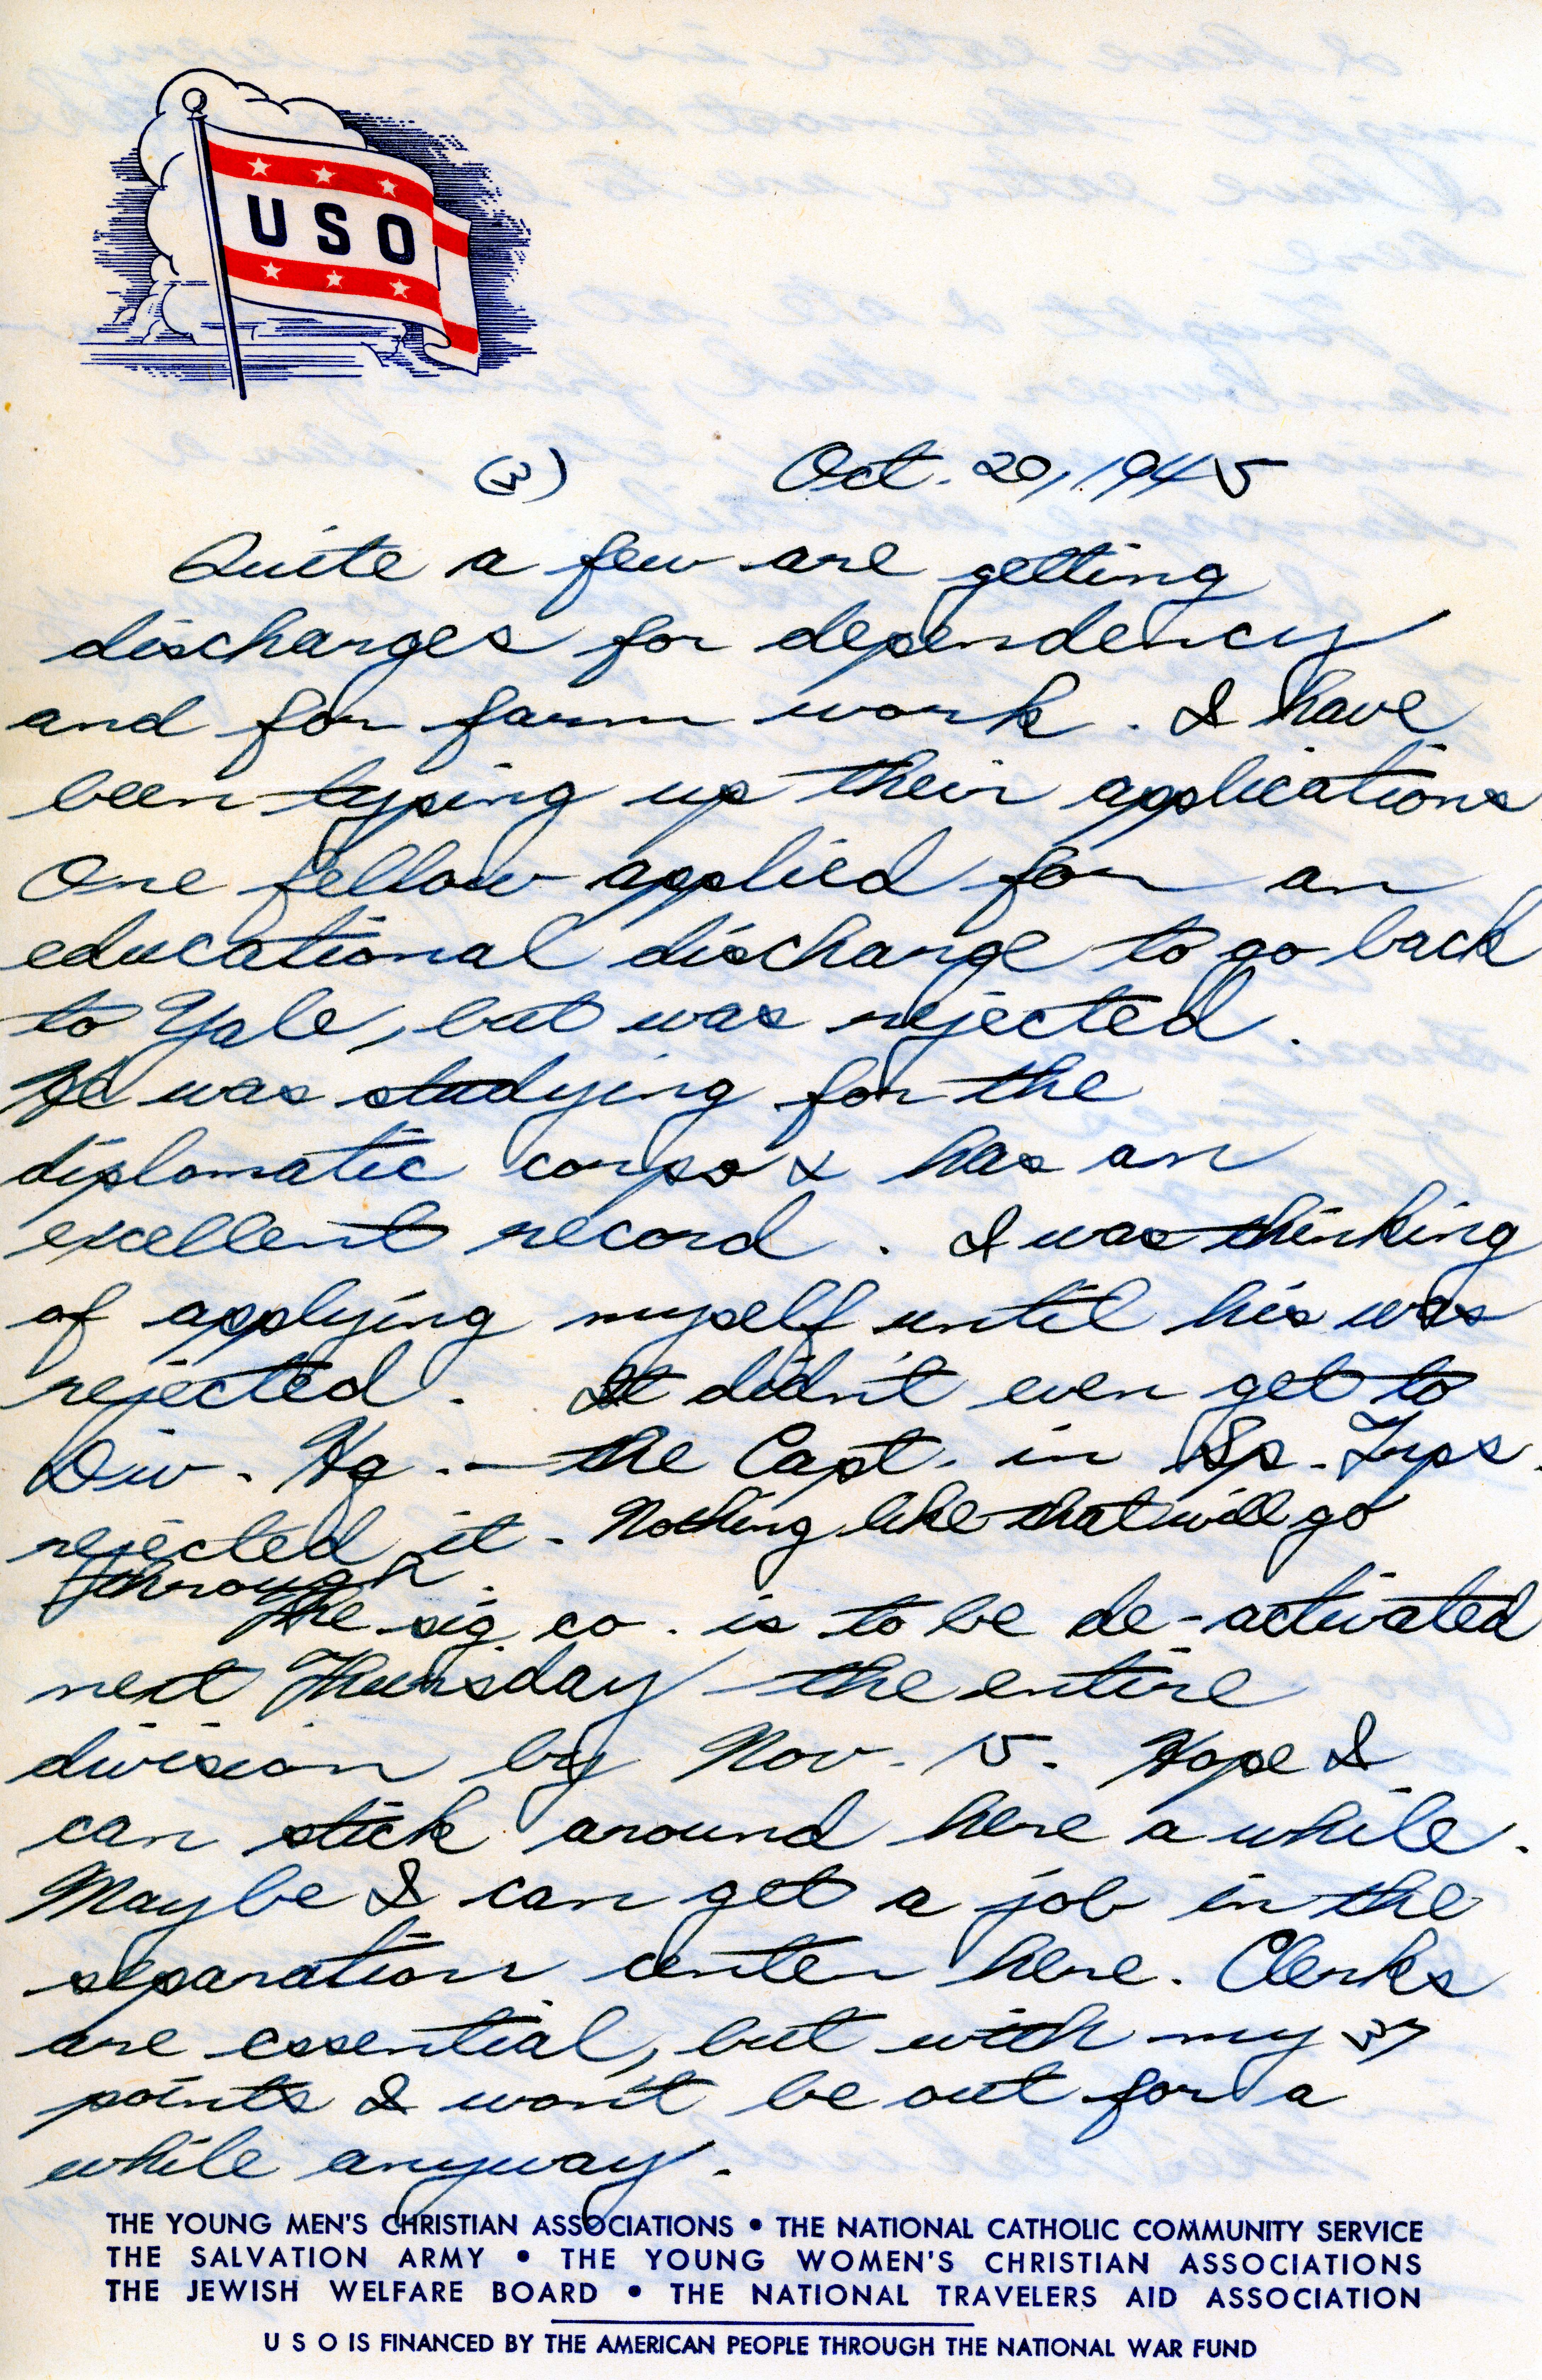 USO
(3) Oct. 20, 1945
Quite a few are getting
discharges for dependency
and for farm work. I have
been typing up their applications
One fellow applied for an
educational discharge to go back
to Yale, but was rejected.
He was studying for the
diplomatic corps & has an
excellent record. I was thinking
of applying myself until his was
rejected. It didn't even get to
Div. Hq. — the Capt. in Sp. Trps.
rejected it. Nothing like that will go
through.
The sig. co. is to be de-activated
next Thursday — the entire
division by Nov. 15. Hope I
can stick around here a while.
Maybe I can get a job in the
separation center here. Clerks
are essential, but with my 37
points I won't be out for a
while anyway.
THE YOUNG MEN'S CHRISTIAN ASSOCIATIONS • THE NATIONAL CATHOLIC COMMUNITY SERVICE
THE SALVATION ARMY • THE YOUNG WOMEN'S CHRISTIAN ASSOCIATIONS
THE JEWISH WELFARE BOARD • THE NATIONAL TRAVELERS AID ASSOCIATION
U S O IS FINANCED BY THE AMERICAN PEOPLE THROUGH THE NATIONAL WAR FUND